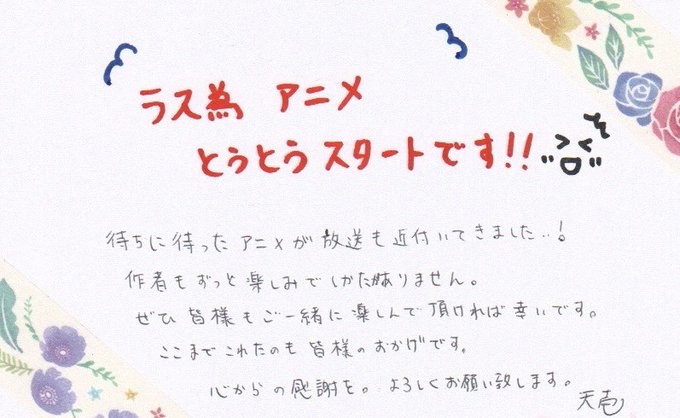 ラス為 アニメ
とうとうスタートです!!
待ちに待ったアニメが放送も近付いてきました..!
作者もずっと楽しみでしかたありません。
ぜひ皆様もご一緒に楽しんで頂ければ幸いです。
ここまでこれたのも皆様のおかげです。
心からの感謝を。よろしくお願い致します。
天壱